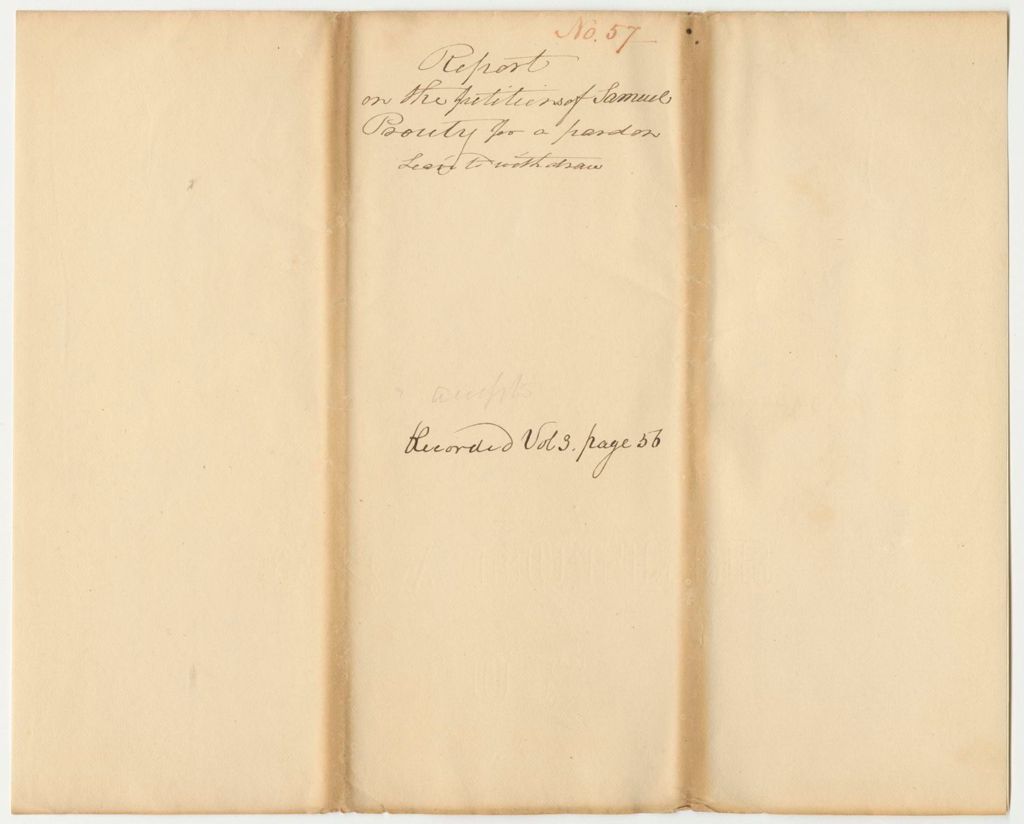 No. 57
Report
on the petition of Samuel
Prouty for a pardon
Leave to withdraw
accept
Recorded Vol 3. page 56